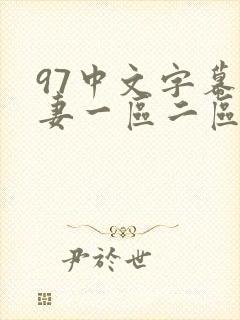 97中文字幕
妻一區二區
尹於世